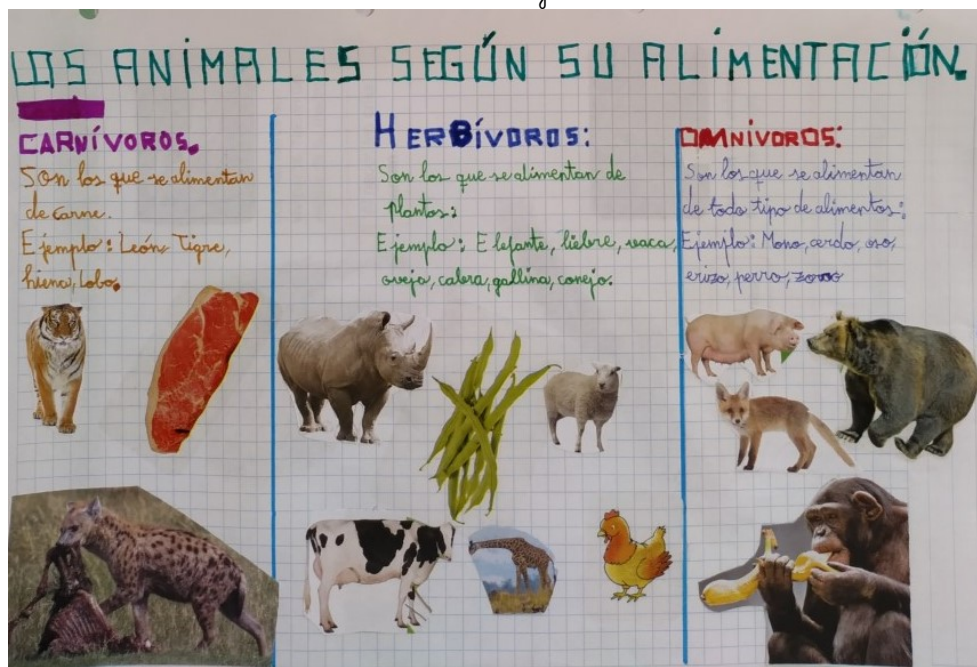 LOS ANIMALES SEGÚN SU ALIMENTACIÓN.
CARNÍVOROS.
Son los que se alimentan
de carne.
Ejemplo: León, Tigre,
hiena, lobo.
HERBÍVOROS:
Son los que se alimentan de
plantas:
Ejemplo: Elefante, liebre, vaca,
oveja, cabra, gallina, conejo.
OMNIVOROS:
Son los que se alimentan
de todo tipo de alimentos:
Ejemplo: Mono, cerdo, oso,
erizo, perro, zorro